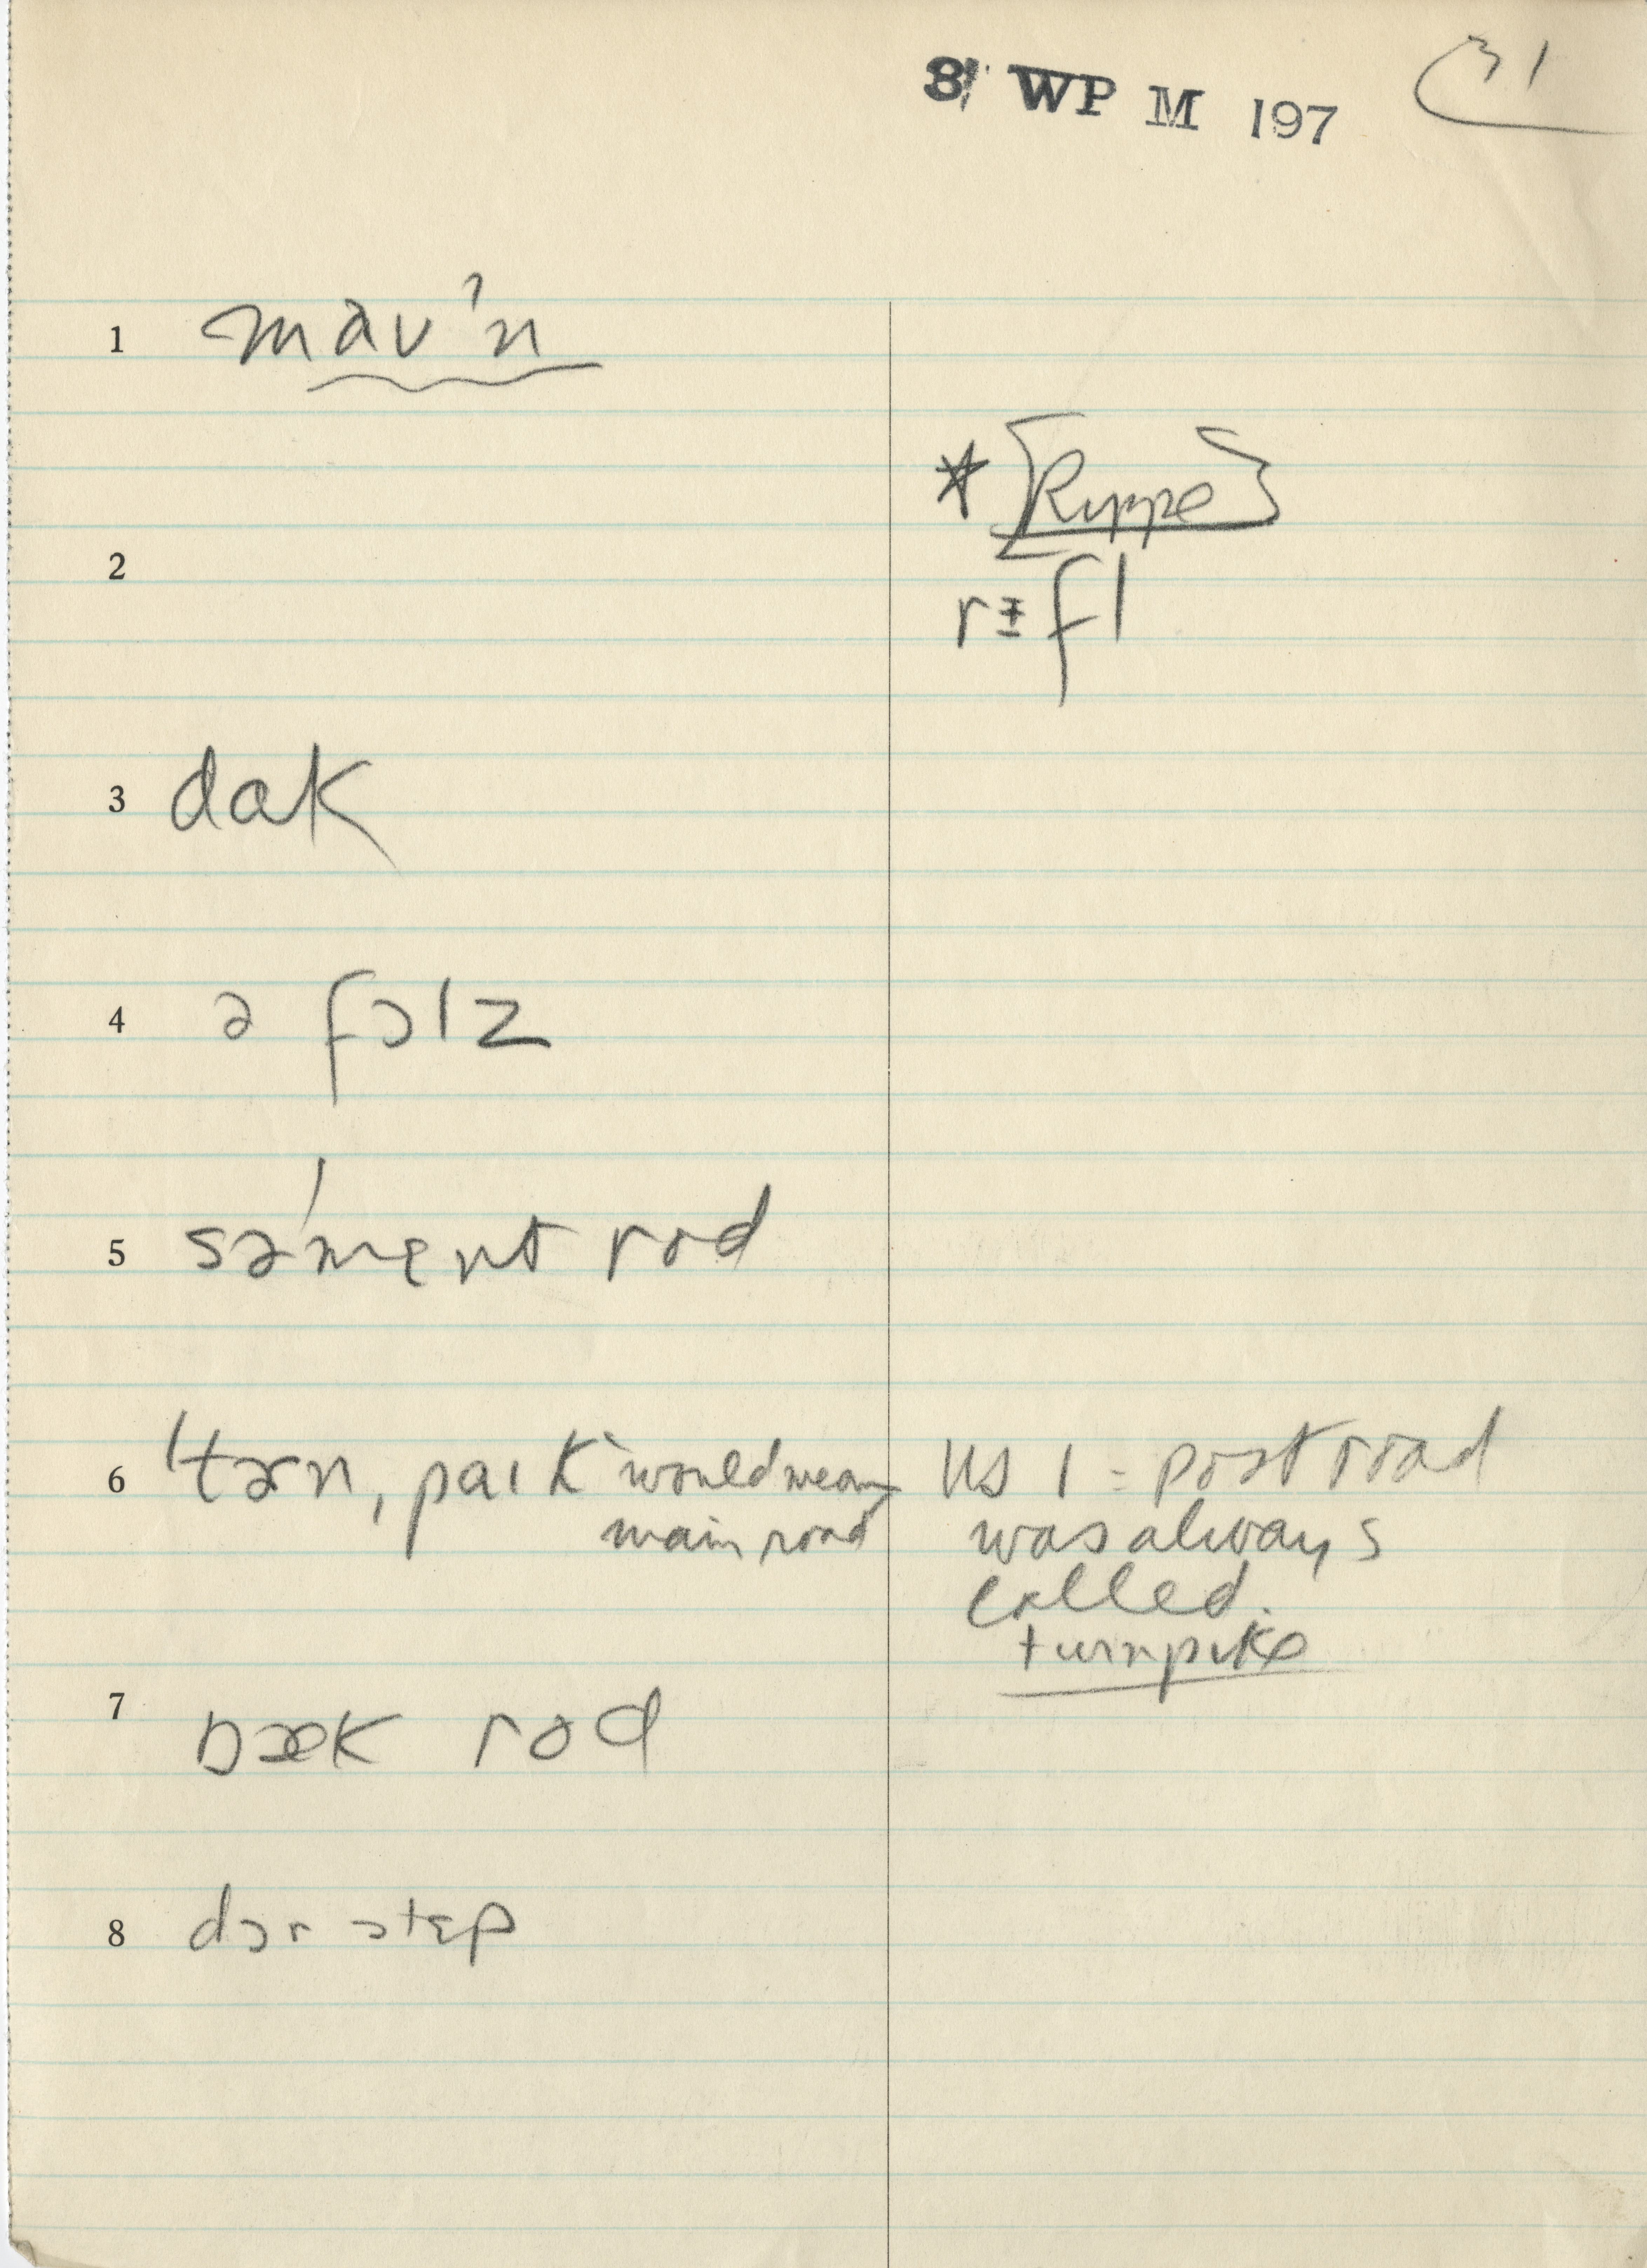 31 WP M 197 31
1 mav'n
* [Ruppe]
2 r±fl
3 dɑk
4 ə fɔlz
5 sə'mɛnt rod
6 'tɜrn, paɪk "would mean US 1 = post road
main road was always
called.
turnpike
7 bæk rod
8 dɔr stɛp